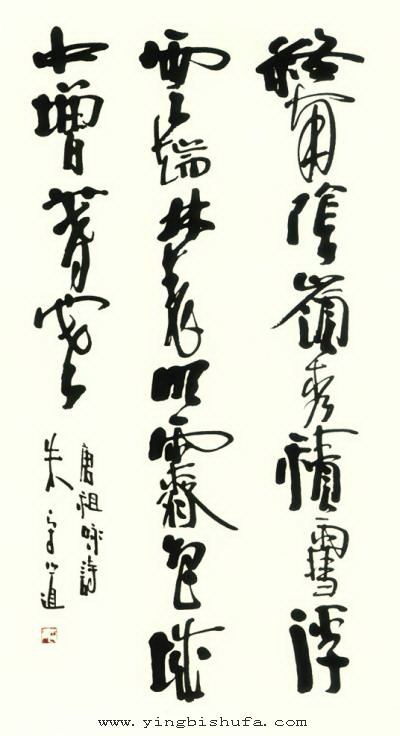 終南陰嶺秀積雪浮
雲端林表明霽色城
中增暮寒
唐祖咏詩
朱守道
www.yingbishufa.com